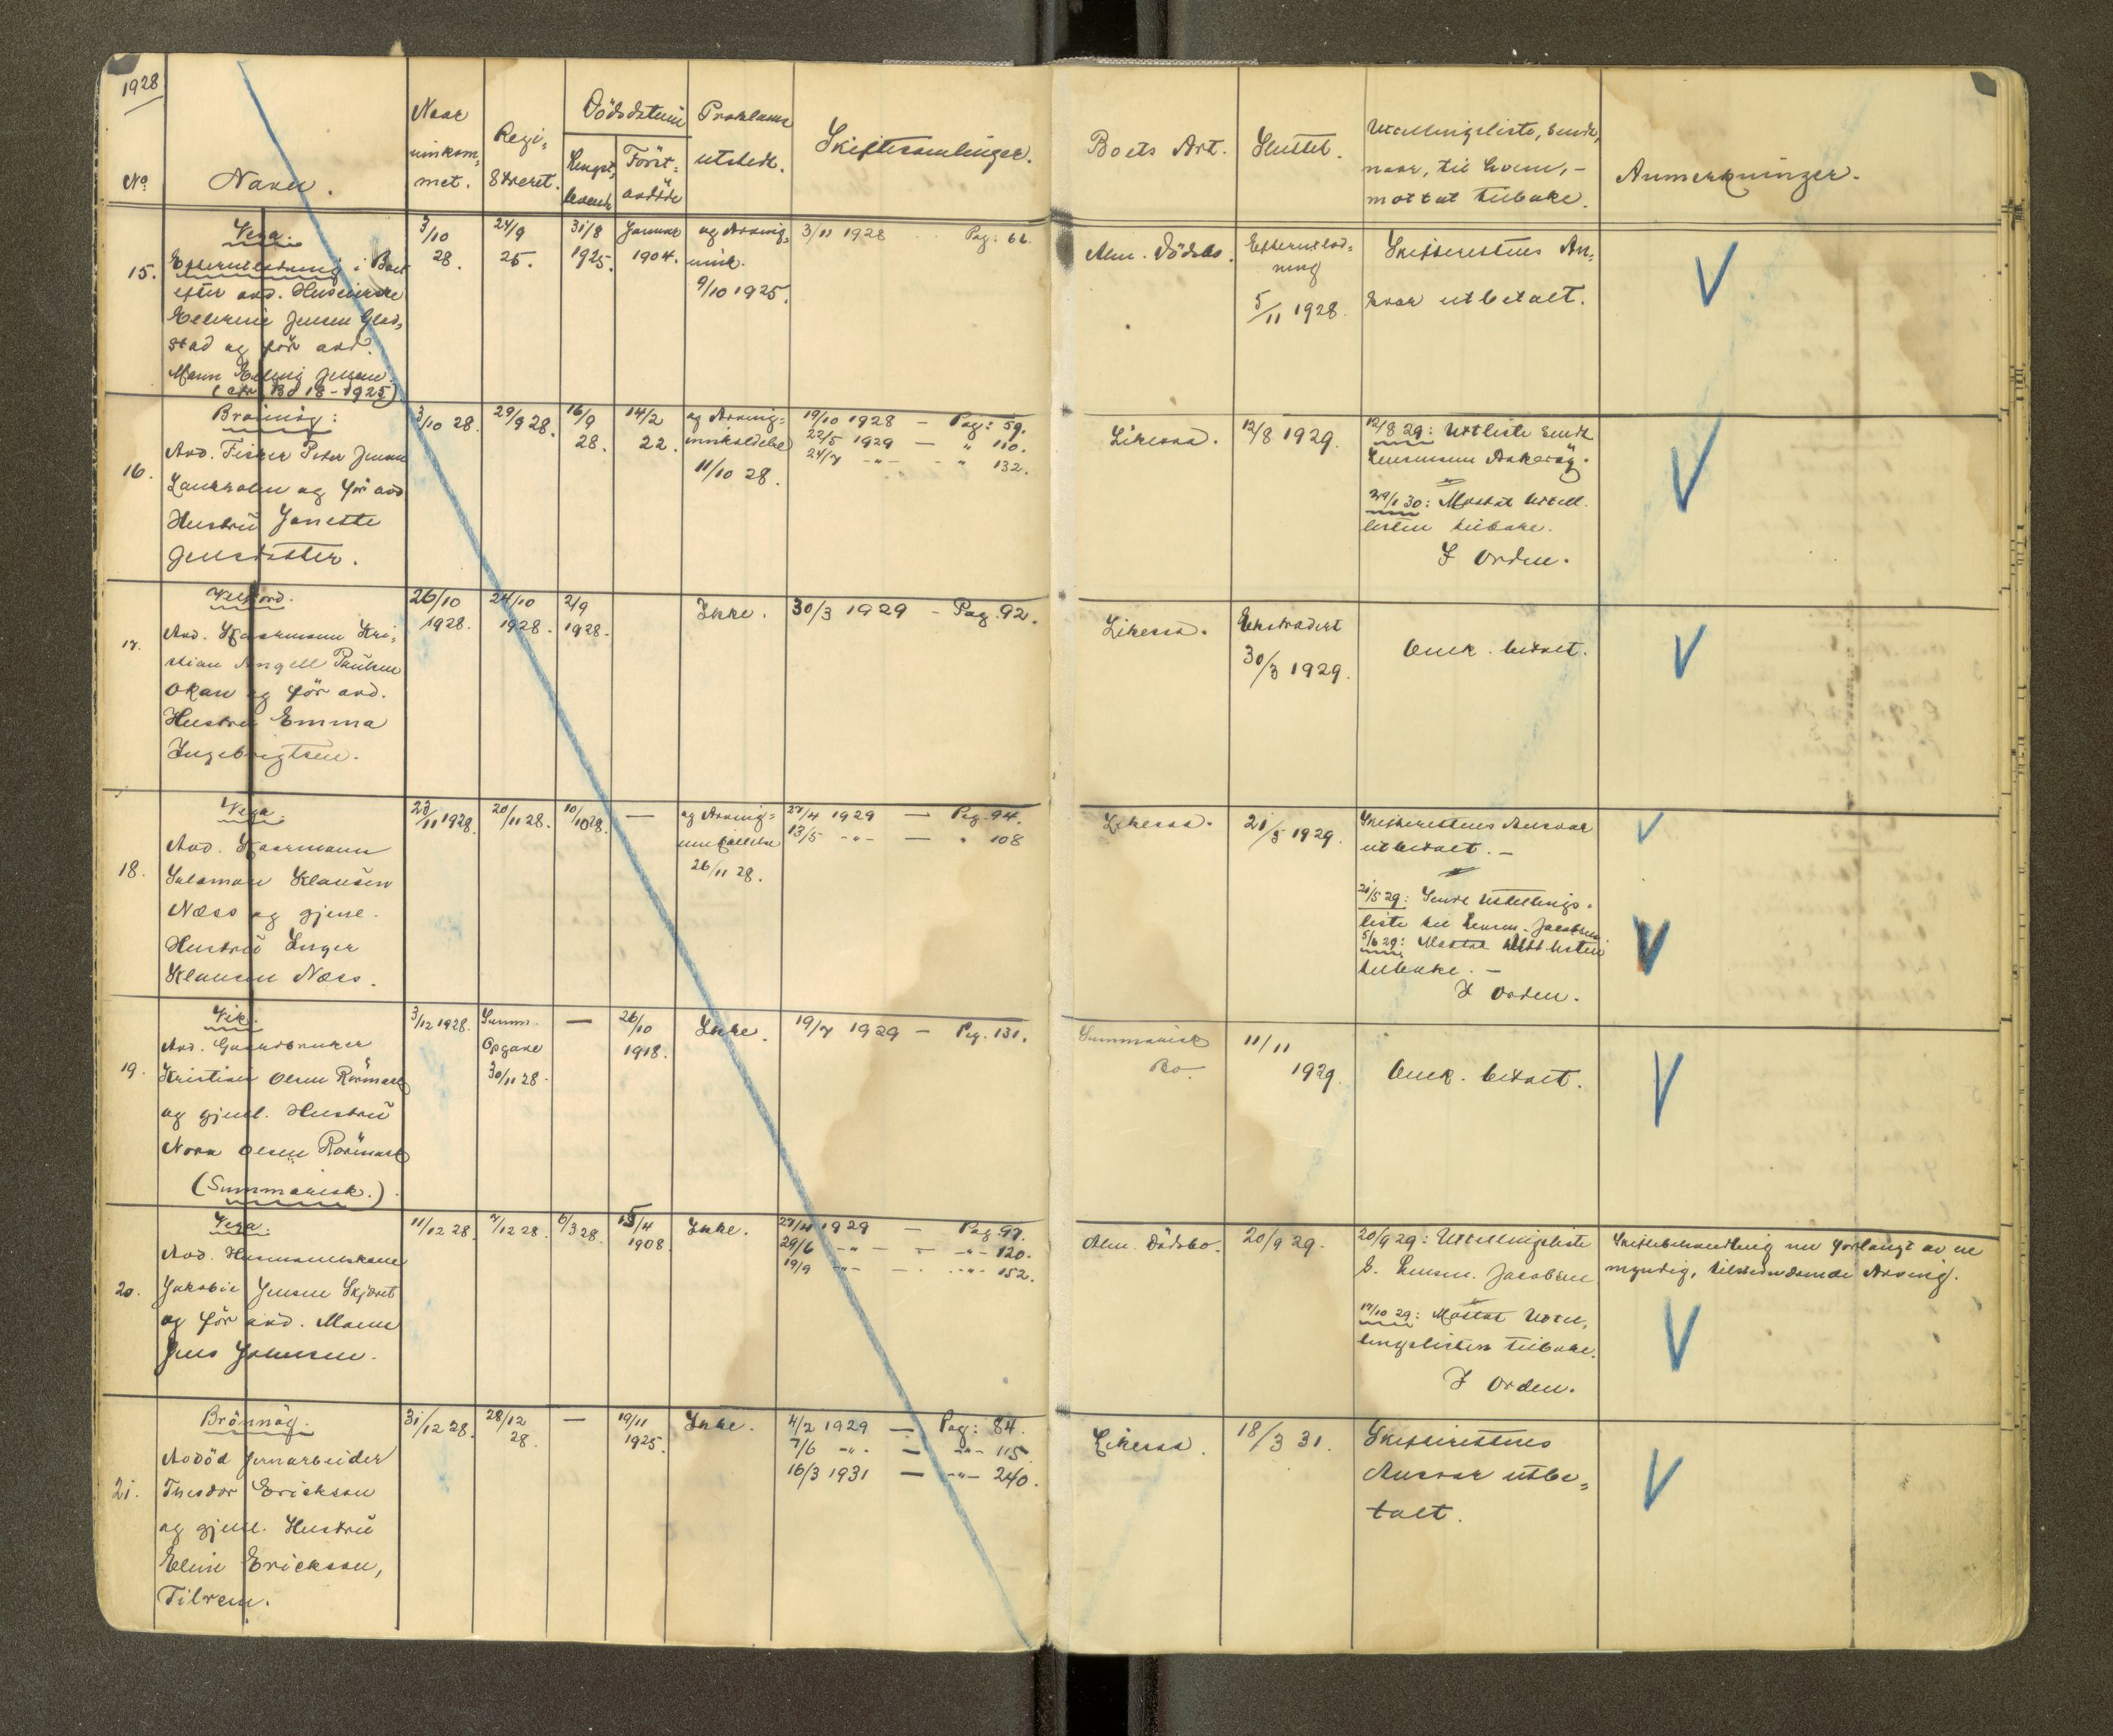 1928
No
Navn.
Naar
innkom-
met.
Regi-
streret.
Dödsdatum
Lengst-
levende
Först-
avdöde
Proklama
utstedt.
Skiftesamlinger.
Boets Art.
Sluttet.
Utdelingsliste, sendt,
naar, til hvem, -
mottat tilbake.
Anmerkninger.
15.
Vega.
Efterutlodning i Boet
efter avd.
Jensen Glad-
stad og för avd.
Mann Jensen.
(cfr. Bo 18 - 1925)
3/10
28.
24/9
25.
31/8
1925.
Januar
1904.
og Arving-
innk.
9/10 1925.
3/11 1928 Pag: 66.
Alm. Dödsbo.
Efterutlod-
ning
5/11 1928.
Skifterettens An-
svar utbetalt.
16.
Brönnöy:
Avd. Fisker Peter Jensen
og för avd
Hustru Janette
Jensdatter.
3/10 28.
29/9 28.
16/9
28.
14/2
22.
og Arving-
innkaldelse
11/10 28.
19/10 1928 - Pag: 59.
22/5 1929 - " 110.
24/7 -"- - " 132.
Likesaa.
12/8 1929.
12/8 29: Utliste sendt
Lensmann
29/1 30: Mottat utdel.
listen tilbake.
I Orden.
17.
Velfjord.
Avd. Kaarmann Kri-
stian Angell Paulsen
Okan og för avd.
Hustru Emma
Ingebrigtsen.
26/10
1928.
24/10
1928.
2/9
1928.
Ikke.
30/3 1929 - Pag. 92.
Likesaa.
Ekstradert
30/3 1929.
Omk. betalt.
18.
Vega.
Avd. Kaarmann
Salamon Klausen
Næss og gjenl.
Hustru Inger
Klausen Næss.
23/11 1928.
20/11 28.
10/10 28.
—
og Arving-
innkallelse
26/11 28.
27/4 1929 — Pag. 94.
13/5 -"- — " 108
Likesaa.
21/5 1929.
Skifterettens Ansvar
utbetalt. -
21/5 29: Sendt Utdelings-
liste til Lensm. Jacobsen
5/6 29: Mottat Utd.listen
tilbake. -
I Orden.
19.
Vik.
Avd. Gaardbruker
Kristian Olsen Rörmark
og gjenl. Hustru
Nora Olsen Rörmark
(Summarisk.)
3/12 1928.
Summ.
Opgave
30/11 28.
—
26/10
1918.
Ikke.
19/7 1929 - Pag. 131.
Summarisk
Bo.
11/11
1929.
Omk. betalt.
20.
Vega.
Avd. Husmannskone
Jakobie Jensen Skjæret
og för avd. Mann
Jens Johnsen.
11/12 28.
7/12 28.
6/3 28.
15/4
1908.
Ikke.
27/4 1929 — Pag. 97.
29/6 -"- - -"- 120.
19/9 -"- - -"- 152.
Alm. Dödsbo.
20/9 29.
20/9 29: Utdelingsliste
s. Lensm. Jacobsen
17/10 29: Mottat Utdel-
lingslisten tilbake.
I Orden.
Skiftebehandling nu forlangt av en
myndig, tilstedeværende Arving.
21.
Brönnöy.
Avdöd Jernarbeider
Theodor Erickson
og gjenl. Hustru
Eline Erickson,
Tilrem.
31/12 28.
28/12
28.
—
19/11
1925.
Ikke.
4/2 1929 — Pag: 84.
7/6 -"- — -"- 115.
16/3 1931 — -"- 240.
Likesaa.
18/3 31.
Skifterettens
Ansvar utbe-
talt.